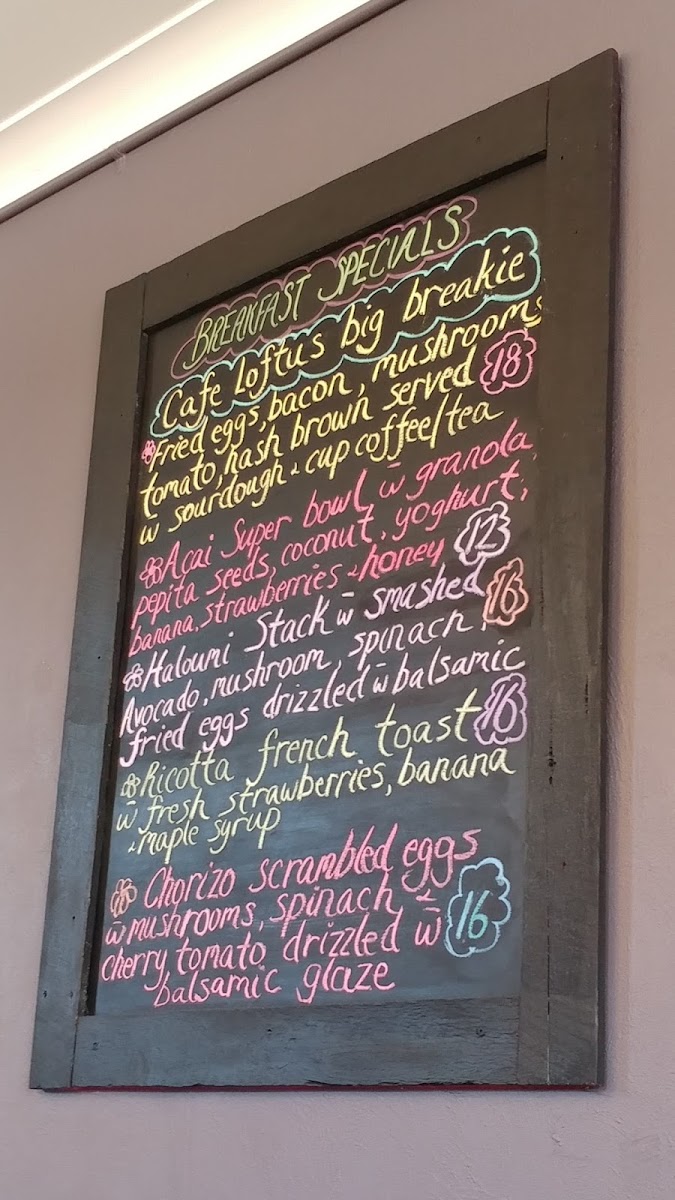 BREAKFAST SPECIALS
Cafe Loftus big breakie
Fried eggs, bacon, mushrooms
tomato, hash brown served 18
w sourdough & cup coffee/tea
Acai Super bowl w̄ granola,
pepita seeds, coconut, yoghurt,
banana, strawberries & honey 12
Haloumi Stack w̄ smashed 16
Avocado, mushroom, spinach,
fried eggs drizzled w̄ balsamic
Ricotta french toast 16
w̄ fresh strawberries, banana
& maple syrup
Chorizo scrambled eggs
w̄ mushrooms, spinach &
cherry tomato drizzled w̄ 16
balsamic glaze